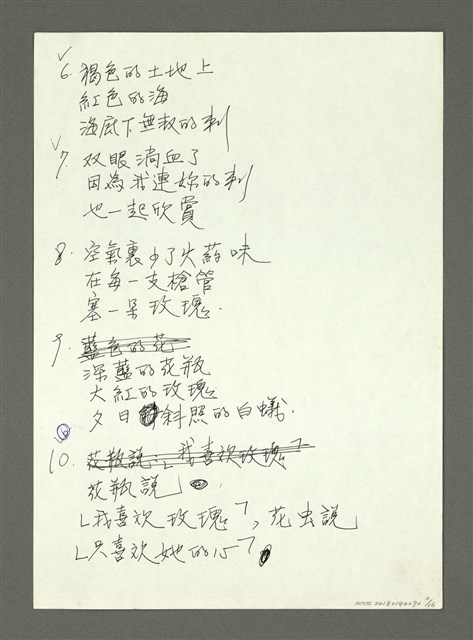 6. 褐色的土地上
紅色的海
海底下無救的刺
7. 双眼淌血了
因為我連妳的刺
也一起欣賞
8. 空氣裏少了火葯味
在每一支槍管
塞一朵玫瑰.
9. 藍色的花
深藍的花瓶
大紅的玫瑰
夕日斜照的白蟻.
10. 花瓶說:「我喜欢玫瑰」
花瓶說
「我喜欢玫瑰」,花虫說
「只喜欢她的15」
NMTL20180190070